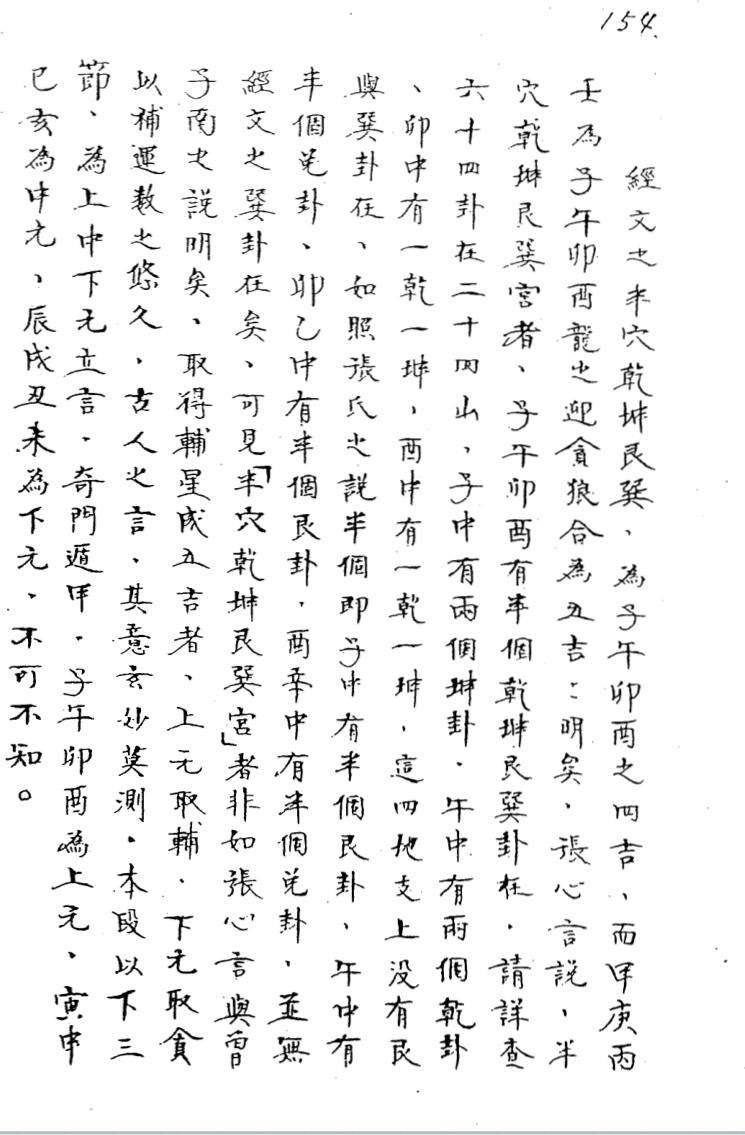 154.
經文之半穴乾坤艮巽、為子午卯酉之四吉、而甲庚丙
壬為子午卯酉龍之迎貪狼合為五吉：明矣、張心言說、半
穴乾坤艮巽宮者、子午卯酉有半個乾坤艮巽卦在．請詳查
六十四卦在二十四山，子中有兩個坤卦．午中有兩個乾卦
、卯中有一乾一坤，酉中有一乾一坤．這四地支上没有艮
與巽卦在、如照張氏之說半個即子中有半個艮卦、午中有
半個兌卦、卯乙中有半個艮卦．酉辛中有半個兌卦，並無
經文之巽卦在矣、可見「半穴乾坤艮巽宮」者非如張心言與曾
子南之說明矣、取得輔星成五吉者、上元取輔．下元取貪
以補運數之悠久，古人之言、其意玄妙莫測．本段以下三
節、為上中下元立言．奇門遁甲．子午卯酉為上元、寅申
巳亥為中元、辰戌丑未為下元，不可不知。